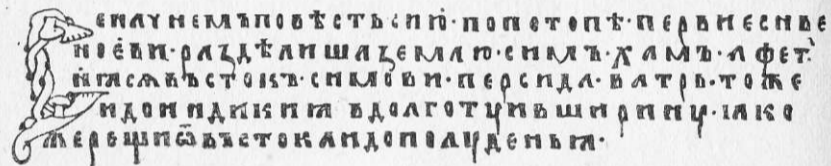 Сенаꙋнемъповѣстьсию·попотопѣ·первиеснве
ноеви·раздѣлишаꙁемлю·симъ·хамъ·афет·
иꙗсѧвъстокъ·симови·персида·ватрь·тоже
идоиндикиꙗ вдолготꙋивширинꙋ·ꙗко
жерещиѿвъстокаидополꙋденьꙗ·